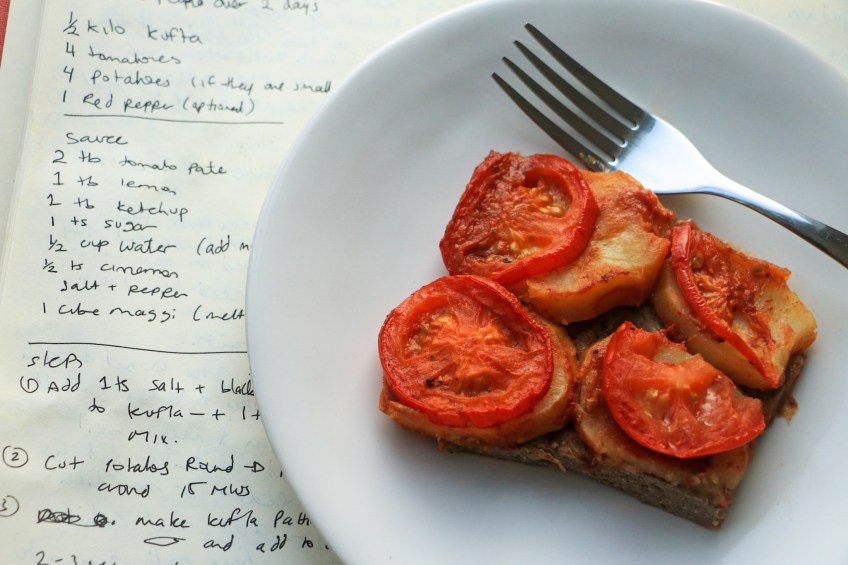 people over 2 days
1/2 kilo kufta
4 tomatoes
4 potatoes (if they are small
1 Red pepper (optional)
Sauce
2 tb tomato pate
1 tb lemon
1 tb ketchup
1 ts sugar
1/2 cup water (add m
1/2 ts cinemon
salt + pepper
1 cube maggi (melt
steps
① Add 1 ts salt + black
to kufta + 1 t
Mix.
② Cut potatos Round →
around 15 MNS
3 make kufta patt
and add to
2-3